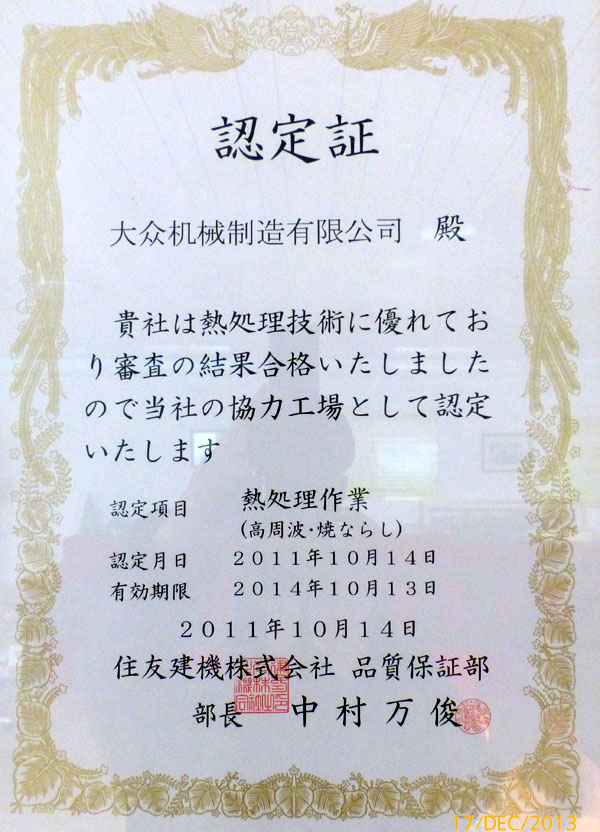 認定証
大众机械制造有限公司 殿
貴社は熱処理技術に優れてお
り審査の結果合格いたしました
ので当社の協力工場として認定
いたします
認定項目 熱処理作業
(高周波・焼ならし)
認定月日 2011年10月14日
有効期限 2014年10月13日
2011年10月14日
住友建機株式会社 品質保証部
部長 中村万俊
17/DEC/2013